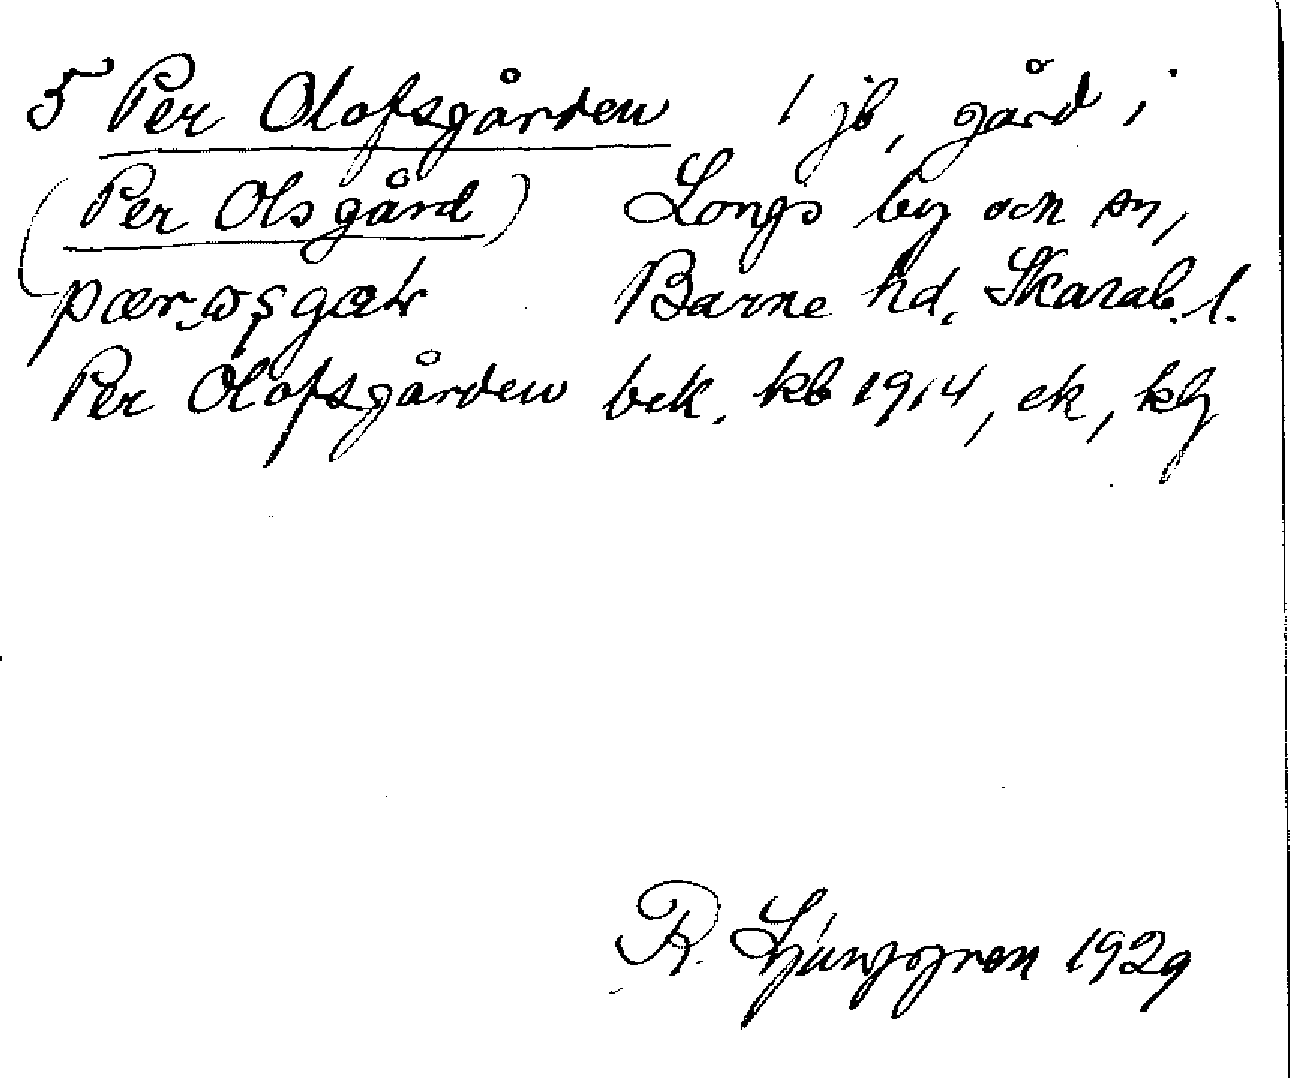 5 Per Olofsgården 1 jb, gård i
(Per Olsgård) Longs by och sn,
Barne hd, Skarab. l.
Per Olofsgården bek. kb 1914, ek, klj
R. Ljunggren 1929